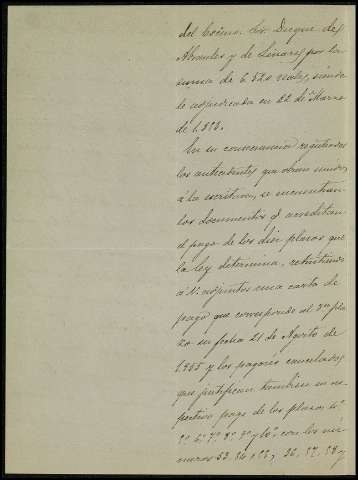 del Excmo. Sor. Duque de
Abrantes y de Linares por la
suma de 6.520 reales, siendo
le adjudicada en 22 de Marzo
de 1.8
En su consecuencia registrados
los antecedentes que obran unidos
á la escritura, se encuentran
los documentos q acreditan
el pago de los diez plazos que
la ley determina, remitiendo
á V. adjuntos una carta de
pago que corresponde al 3er pla
zo su fecha 21 de Agosto de
1.855 y los pagarés cancelados
que justifican tambien su res
pectivo pago de los plazos 4º
5º 6º 7º 8º 9º y 10º con los nú
meros 53. 54 y 36, 37. 38 y